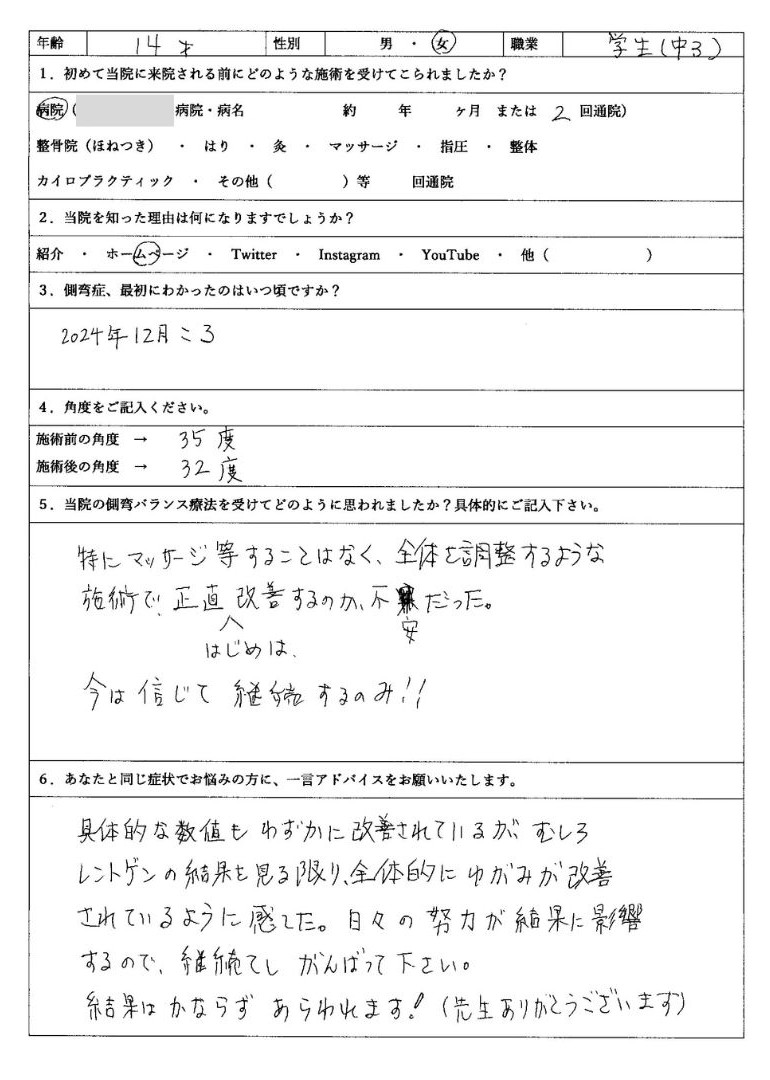 年齢 14才 性別 男 ・ 女 職業 学生(中3)
1．初めて当院に来院される前にどのような施術を受けてこられましたか？
病院（ 病院・病名 約 年 ヶ月 または 2 回通院）
整骨院（ほねつき） ・ はり ・ 灸 ・ マッサージ ・ 指圧 ・ 整体
カイロプラクティック ・ その他（ ）等 回通院
2．当院を知った理由は何になりますでしょうか？
紹介 ・ ホームページ ・ Twitter ・ Instagram ・ YouTube ・ 他（ ）
3．側弯症、最初にわかったのはいつ頃ですか？
2024年12月ころ
4．角度をご記入ください。
施術前の角度 → 35度
施術後の角度 → 32度
5．当院の側弯バランス療法を受けてどのように思われましたか？具体的にご記入下さい。
特にマッサージ等することはなく、全体を調整するような
施術で、正直改善するのか、不だった。
安
はじめは、
今は信じて継続するのみ!!
6．あなたと同じ症状でお悩みの方に、一言アドバイスをお願いいたします。
具体的な数値もわずかに改善されているが むしろ
レントゲンの結果を見る限り、全体的にゆがみが改善
されているように感じた。日々の努力が結果に影響
するので、継続てし がんばって下さい。
結果はかならず あらわれます!（先生ありがとうございます）